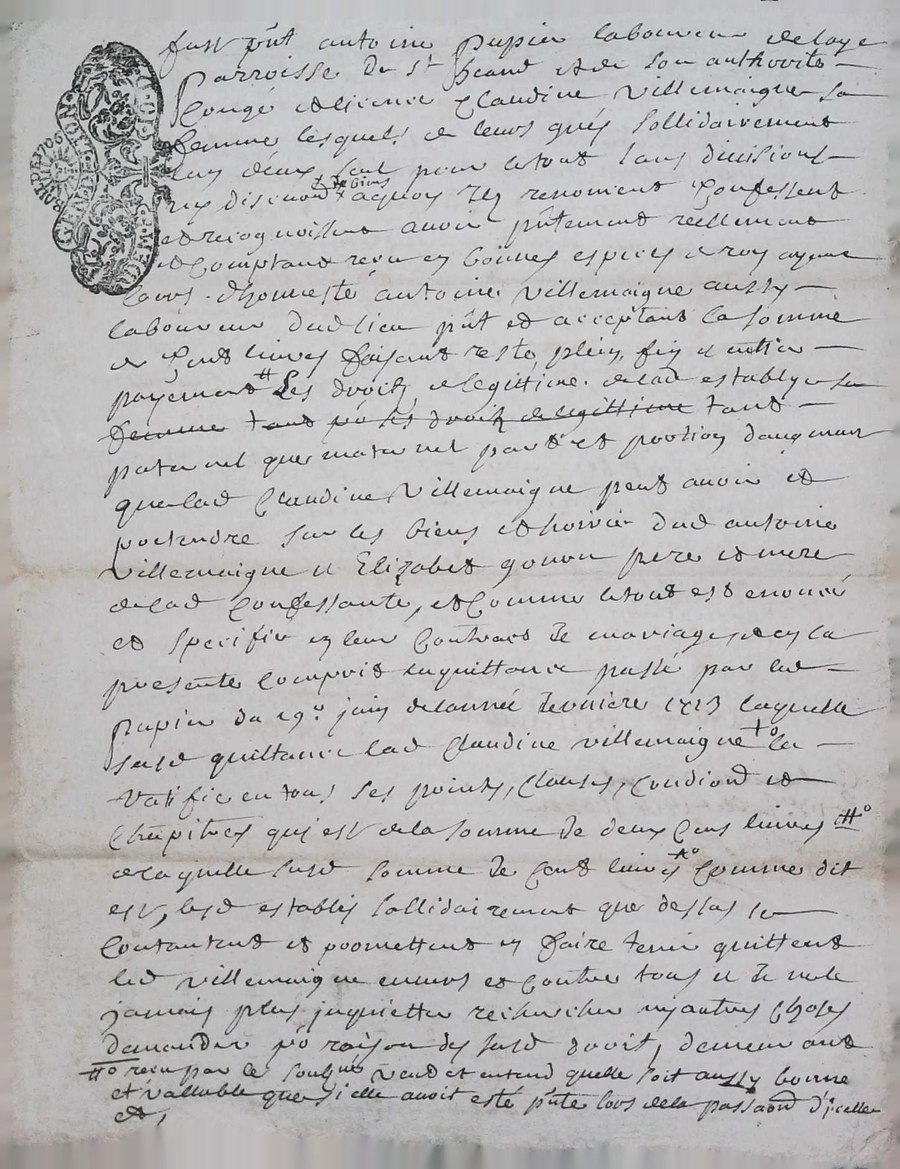 GEN. DE LION
DEM. F.
fust pñt antoine papier laboureur delaye
Parroisse de st heand et de son authorité
Congé et licence Claudine villemaigne sa
femme lesquels de leurs grés sollidairement
lun deux seul pour le tout sans division
ny discution de biens a quoy ils renoncent Confessent
et recognoissent avoir pñtement reellement
et Comptant receu en bonnes especes de roy ayant
Cours. d'honneste antoine villemaigne aussy
laboureur dud lieu pñt et acceptant la somme
de Cent livres faisant reste, plein, fin et entier
payement # Les droits de legittime. de lad establye sa
femme tant po les droits de legittime tant
paternel que maternel part et portion daugment
que lad Claudine villemaigne peut avoir et
pretendre sur les biens et hoirie dud antoine
villemaigne et Elizabet gonon pere et mere
de lad Confessante, et Comme le tout est enoncé
et specifié en leur Contract de mariage, et en la
presente Compris la quittance passé par led
papier du 29e juin de lannée derniere 1713 laquelle
susd quittance lad Claudine villemaigne la
ratifie en tous ses points, Clauses, Condiond et
Chapitres qui est de la somme de deux Cens livres #o
de laquelle susd somme de Cent livres Comme dit
est, lesd establis sollidairement que dessus se
Contantent et promettent en faire tenir quittent
led villemaigne envers et Contre tous et de ne le
jamais plus inquietter rechercher ny autres Choses
demander po raison des susd droit, demeurant
#o receu par le soubsné veud et entend quelle soit aussy bonne
et vallable que si elle avoit esté pñte lors de la passaond d'icelle
et,